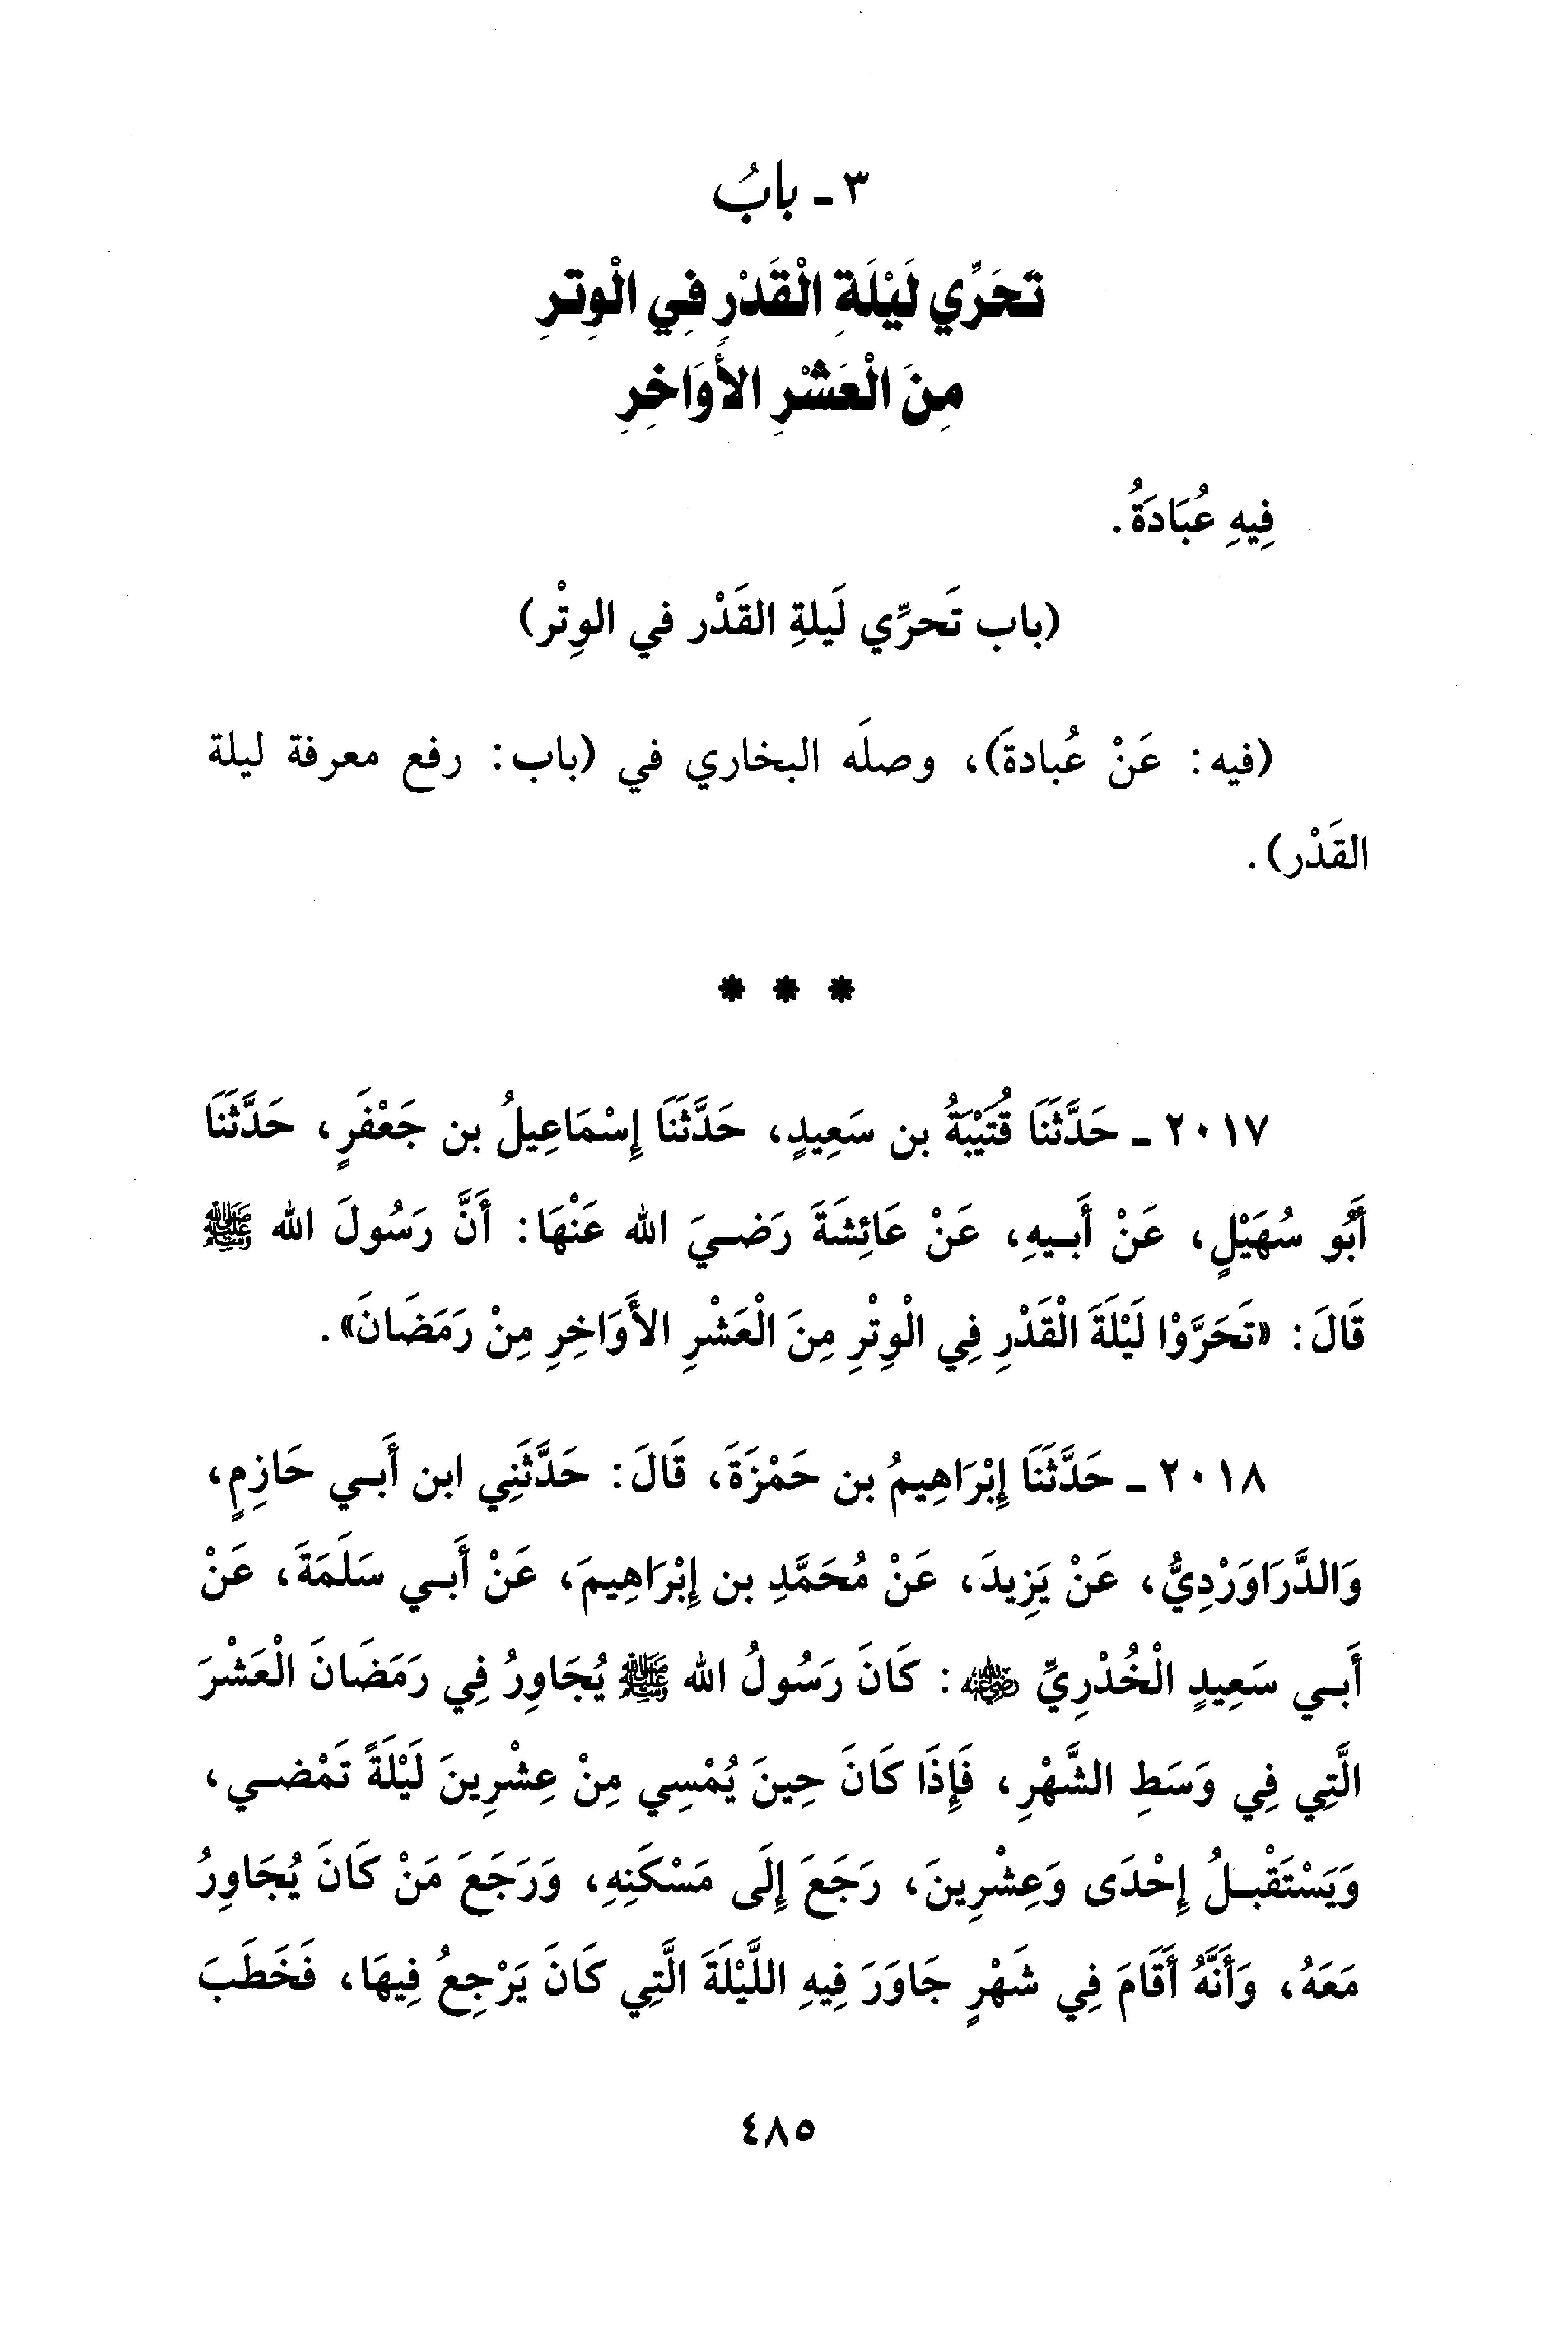 ٣ - بابُ
تَحَرِّي لَيْلَةِ الْقَدْرِ فِي الْوِترِ
مِنَ الْعَشْرِ الأَوَاخِرِ
فِيهِ عُبَادَةُ.
(باب تَحرِّي لَيلةِ القَدْر في الوِتْر)
(فيه: عَنْ عُبادةَ)، وصلَه البخاري في (باب: رفع معرفة ليلة
القَدْر).
* * *
٢٠١٧ - حَدَّثَنَا قُتَيْبَةُ بن سَعِيدٍ، حَدَّثَنَا إِسْمَاعِيلُ بن جَعْفَرٍ، حَدَّثَنَا
أَبُو سُهَيْلٍ، عَنْ أَبيهِ، عَنْ عَائِشَةَ رَضيَ الله عَنْهَا: أَنَّ رَسُولَ الله ﷺ
قَالَ: «تَحَرَّوْا لَيْلَةَ الْقَدْرِ فِي الْوِتْرِ مِنَ الْعَشْرِ الأَوَاخِرِ مِنْ رَمَضَانَ».
٢٠١٨ - حَدَّثَنَا إِبْرَاهِيمُ بن حَمْزَةَ، قَالَ: حَدَّثَنِي ابن أَبي حَازِمٍ،
وَالدَّرَاوَرْدِيُّ، عَنْ يَزِيدَ، عَنْ مُحَمَّدِ بن إِبْرَاهِيمَ، عَنْ أَبي سَلَمَةَ، عَنْ
أَبي سَعِيدٍ الْخُدْرِيِّ رضي الله عنه: كَانَ رَسُولُ الله ﷺ يُجَاوِرُ فِي رَمَضَانَ الْعَشْرَ
الَّتِي فِي وَسَطِ الشَّهْرِ، فَإِذَا كَانَ حِينَ يُمْسِي مِنْ عِشْرِينَ لَيْلَةً تَمْضي،
وَيَسْتَقْبلُ إِحْدَى وَعِشْرِينَ، رَجَعَ إِلَى مَسْكَنِهِ، وَرَجَعَ مَنْ كَانَ يُجَاوِرُ
مَعَهُ، وَأَنَّهُ أَقَامَ فِي شَهْرٍ جَاوَرَ فِيهِ اللَّيْلَةَ الَّتِي كَانَ يَرْجِعُ فِيهَا، فَخَطَبَ
٤٨٥